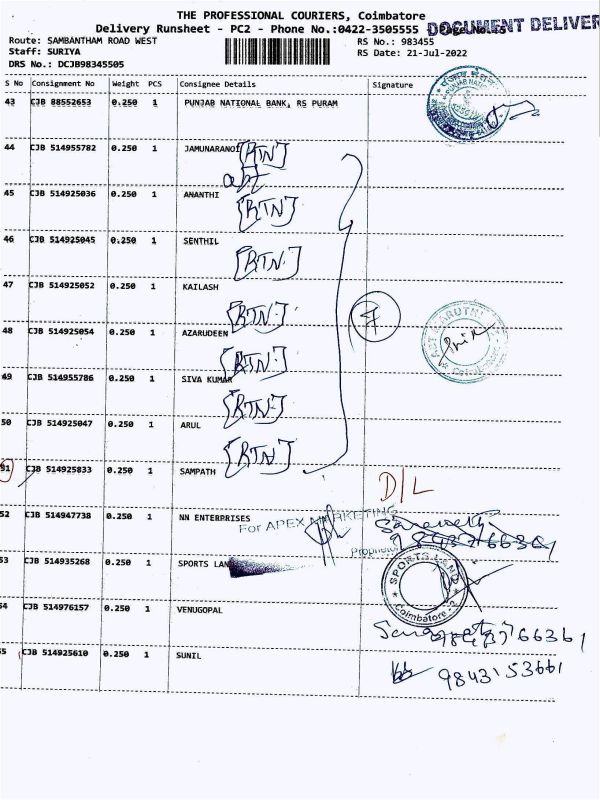 THE PROFESSIONAL COURIERS, Coimbatore
Delivery Runsheet - PC2 - Phone No.:0422-3505555
DOCUMENT DELIVER
Route: SAMBANTHAM ROAD WEST
RS No.: 983455
Staff: SURIYA
RS Date: 21-Jul-2022
DRS No.: DCJB98345505
S No Consignment No Weight PCS Consignee Details Signature
43 CJB 88552653 0.250 1 PUNJAB NATIONAL BANK, RS PURAM
44 CJB 514955782 0.250 1 JAMUNARANOI [RTN]
45 CJB 514925036 0.250 1 ANANTHI [RTN]
46 CJB 514925045 0.250 1 SENTHIL [RTN]
47 CJB 514925052 0.250 1 KAILASH
[RTN]
7
48 CJB 514925054 0.250 1 AZARUDEEN
[RTN]
49 CJB 514955786 0.250 1 SIVA KUMAR
[RTN]
50 CJB 514925047 0.250 1 ARUL
[RTN]
51 CJB 514925833 0.250 1 SAMPATH
D/L
52 CJB 514947738 0.250 1 NN ENTERPRISES
For APEX MARKETING
Proprietor
53 CJB 514935268 0.250 1 SPORTS LAN
SPORTS LAND
Coimbatore-2
54 CJB 514976157 0.250 1 VENUGOPAL
55 CJB 514925610 0.250 1 SUNIL
9843153661